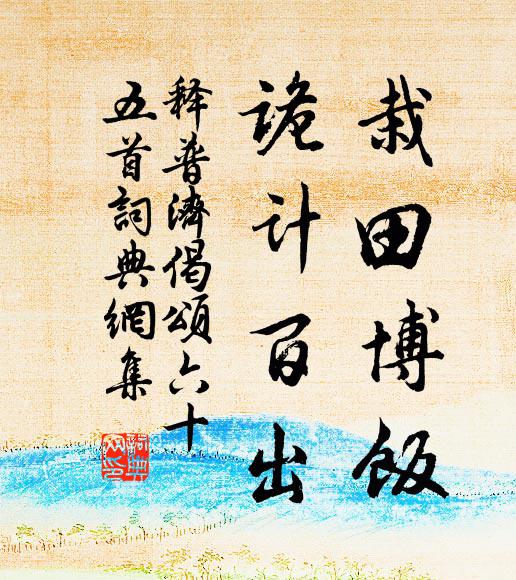 栽田博饭
诡计百出
释普濟偈頌六十
五首詞典網集